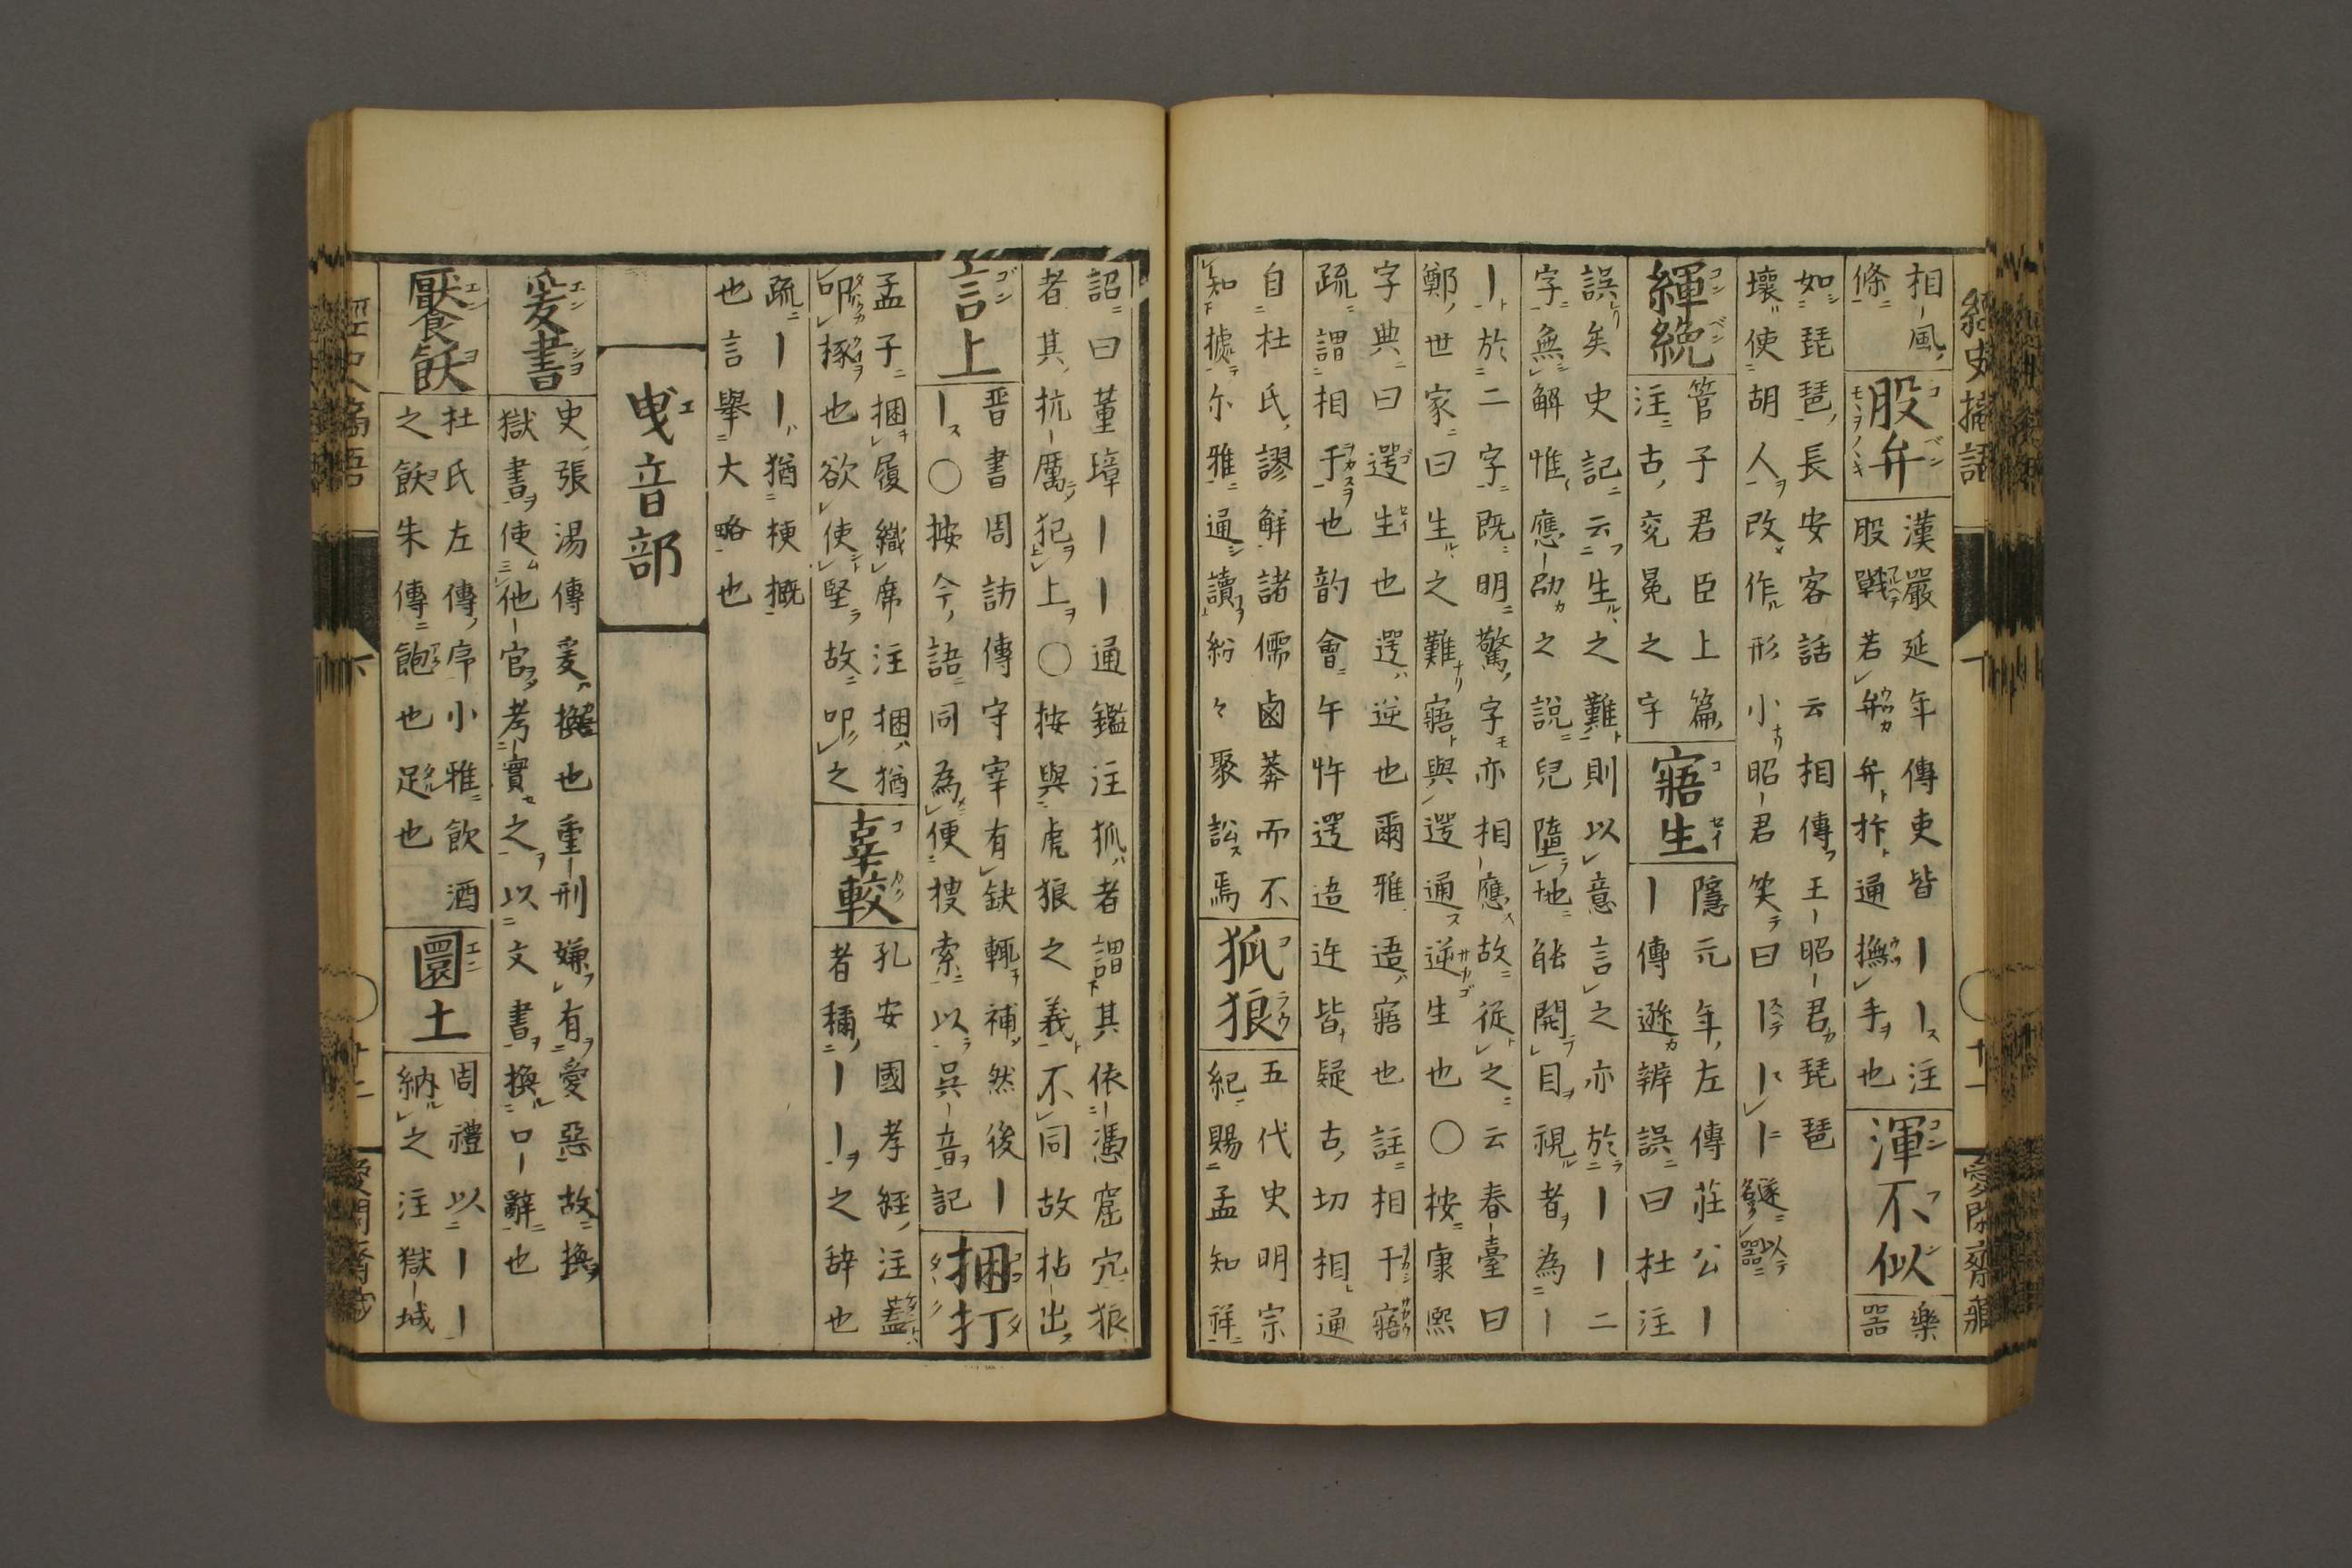 經史摘語
相風
條
股弁
漢嚴延年傳吏皆〡〡注
股戰若弁弁ト抃ト通撫手也
渾不似
樂
器
如琵琶長安客話云相傳王昭君琵琶
壞使胡人改作形小昭君笑曰〡〡〡遂以
名器
緷絻
管子君臣上篇
注古兗冕之字
寤生
隱元年左傳莊公〡
〡傳遜辨誤曰杜注
誤矣史記云生之難則以意言之亦於〡〡二
字無解惟應劭之說兒墮地能開目視者為〡
〡於二字既明驚字亦相應故從之云春臺曰
鄭世家曰生之難寤與遻通逆生也〇按康熙
字典曰遻生也遻逆也爾雅逜寤也註相干寤
疏謂相于也韵會午忤遻逜迕皆疑古切相通
自杜氏謬解諸儒鹵莽而不
知據尔雅通讀紛々聚訟焉
狐狼
五代史明宗
紀賜孟知祥
詔曰董璋〡〡通鑑注狐者謂其依憑窟穴狼
者其抗厲犯上〇按與虎狼之義不同故拈出
言上
晋書周訪傳守宰有缺輒補然後〡
〡〇按今語同為便搜索以呉音記
捆打
孟子捆屨織席注捆猶
叩㧻也欲使堅故叩之
辜較
孔安國孝經注蓋
者稱〡〡之辞也
疏〡〡猶梗概
也言舉大略也
曳音部
爰書
史張湯傳爰換也重刑嫌有愛惡故換
獄書使他官考實之以文書換口辭也
饜飫
杜氏左傳序小雅飲酒
之飫朱傳飽也足也
圜土
周禮以〡〡
納之注獄城